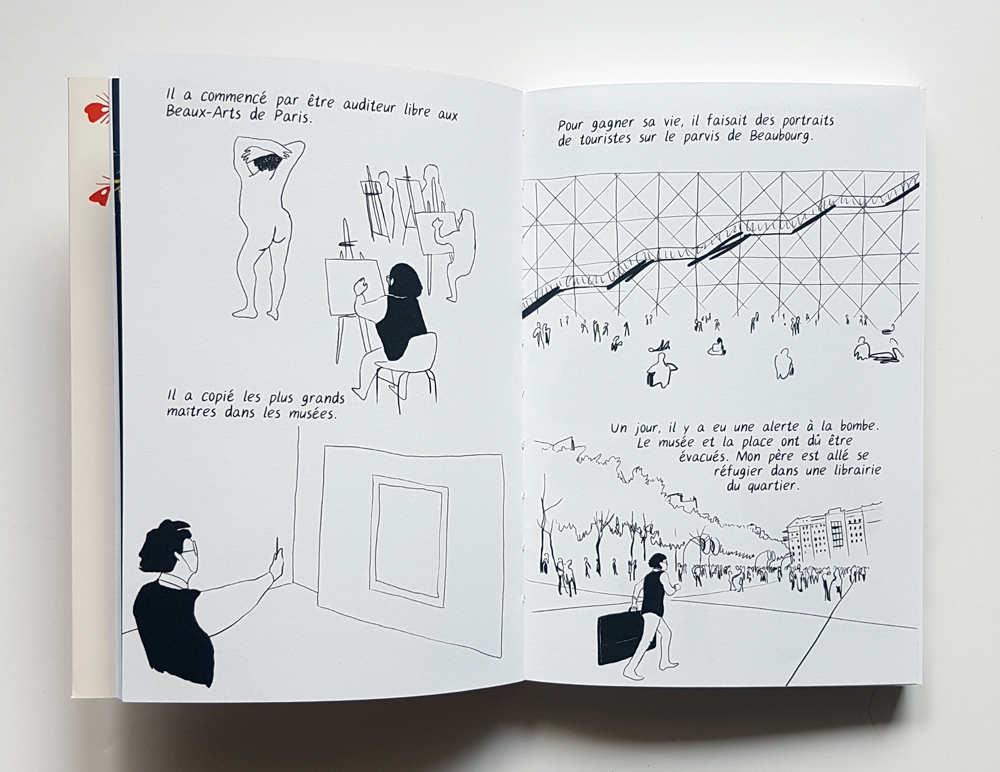 Il a commencé par être auditeur libre aux
Beaux-Arts de Paris.
Il a copié les plus grands
maîtres dans les musées.
Pour gagner sa vie, il faisait des portraits
de touristes sur le parvis de Beaubourg.
Un jour, il y a eu une alerte à la bombe.
Le musée et la place ont dû être
évacués. Mon père est allé se
réfugier dans une librairie
du quartier.